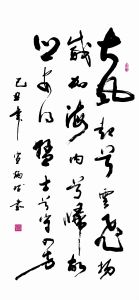 大风起兮雲飛扬
威加海内兮歸故
鄉安得猛士兮守四方
己丑年 书